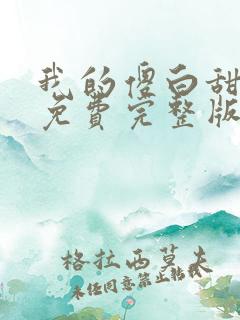 我的傻白甜
免费完整版
格拉西莫夫
未经同意禁止转载